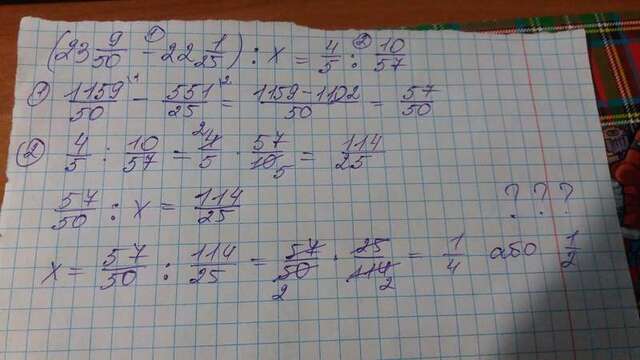 (23 9/50 - 22 1/25) : x = 4/5 : 10/57
1) 1159/50 - 551/25 = 1159-1102/50 = 57/50
2) 4/5 : 10/57 = 4/5 · 57/10 = 114/25
57/50 : x = 114/25 ? ? ?
x = 57/50 : 114/25 = 57/50 · 25/114 = 1/4 або 1/2